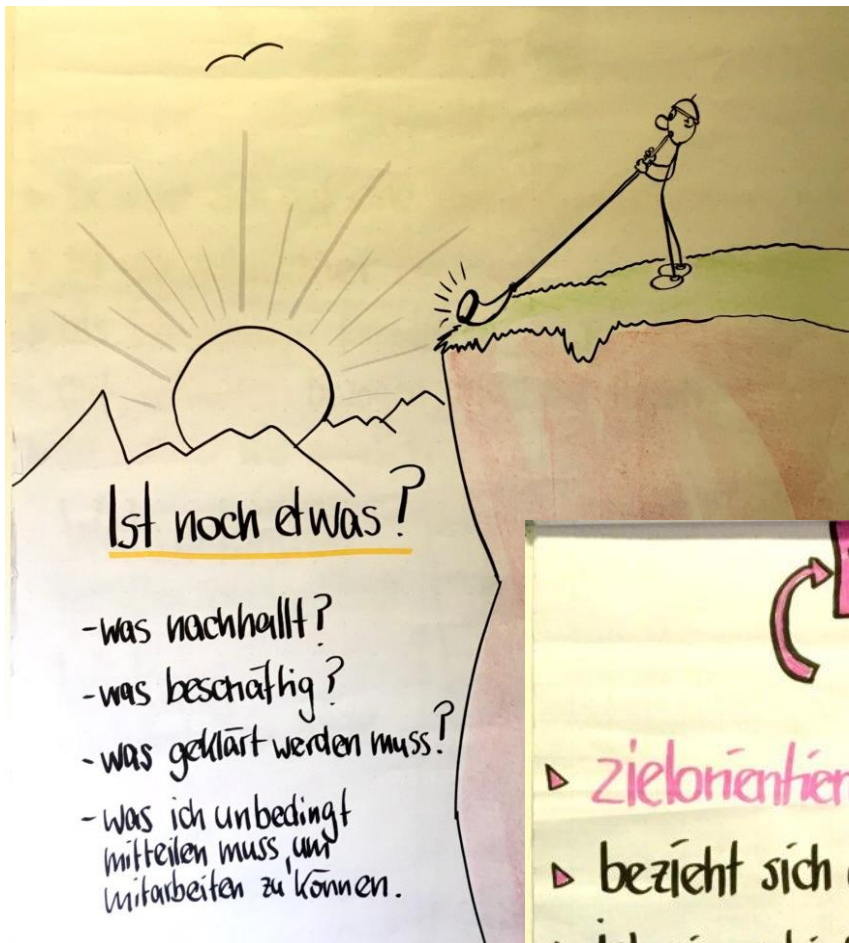 Ist noch etwas?
- was nachhallt?
- was beschäftig?
- was geklärt werden muss?
- was ich unbedingt
mitteilen muss, um
mitarbeiten zu können.
zielorientier
bezieht sich